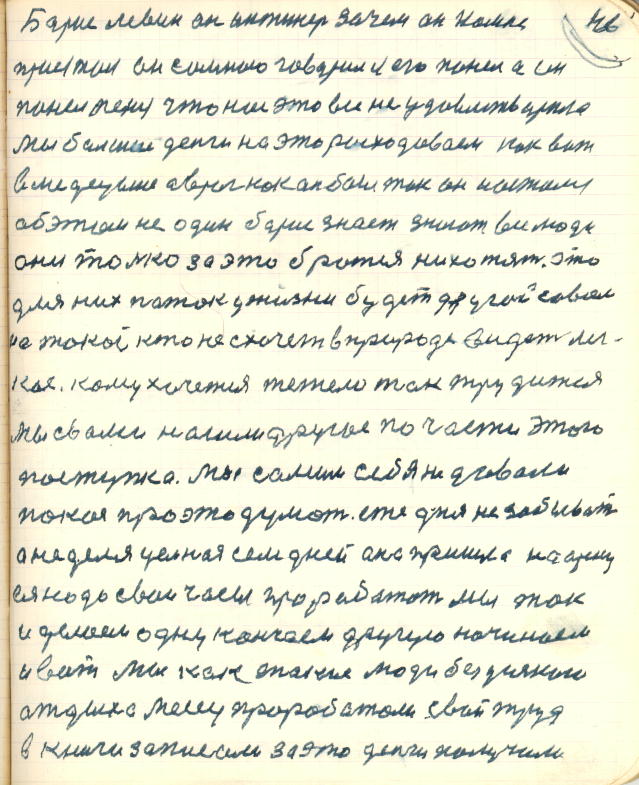 Барис левин он интинер зачем он комне 46
приетои он сомною говорил я его понел а он
понел меня что нас это все не удовлитворила
мы балшие денги на это росходоваем как вот
вмедецыне
обэтом не один барис знает знают все люди
они толко за это братся нихотят. это
для них паток ужизни будет другой совсем
на такой кто не схочет в природе видет лег-
кое. кому хочется тежело так трудится
мы свами нашли другое по части этого
поступка. мы самим себя не довали
покоя проэто думат. еще дня не забыват
а неделя целная семдней она пришла на арену
ея надо свои часы проработат мы так
и делоем одну кончаем другую начиноем
и вот мы как такие люди без всякого
отдыха месец проработали свой труд
в книги записали за это денги получили